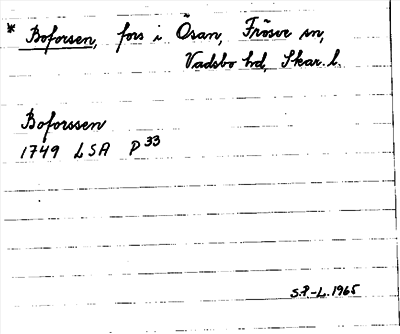 * Boforsen, fors i Ösan, Frösve sn,
Vadsbo hd, Skar. l.
Boforssen
1749 LSA P 33
S.P-L. 1965